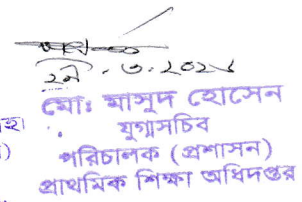 মোঃ মাসুদ হোসেন
যুগ্মসচিব
পরিচালক (প্রশাসন)
প্রাথমিক শিক্ষা অধিদপ্তর